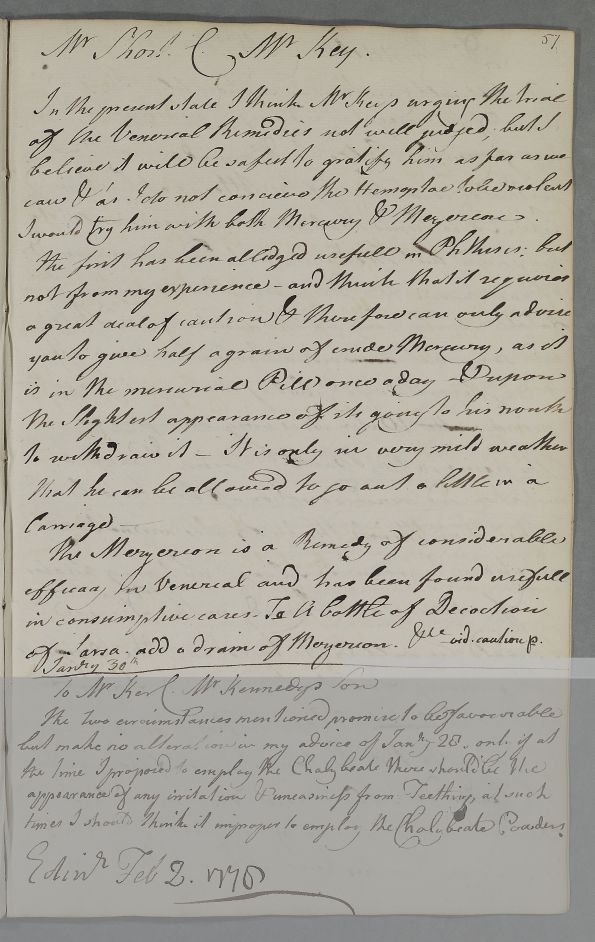 57
Mr Thos. C. Mr Key.
In the present state I think Mr Key's urging the trial
of the Venereal Remedies not well judged, but I
believe it will be safest to gratify him as far as we
can & as I do not concieve the Hemoptoe to be violent
I would try him with both Mercury & Mezereon.
the first has been alledged usefull in Phthisis; but
not from my experience - and think that it requires
a great deal of caution & therefore can only advise
you to give half a grain of crude Mercury, as it
is in the mercurial Pill once a day & upon
the slightest appearance of its going to his mouth
to withdraw it - It is only in very mild weather
that he can be allowed to go out a little in a
Carriage
The Mezereon is a Remedy of considerable
efficacy in Venereal and has been found usefull
in consumptive cases. To a bottle of Decoction
of Sarsa. add a dram of Mezereon. &c - vid. caution p.
Janry 30th
To Mr Ker C. Mr Kennedys Son
The two circumstances mentioned promise to be favourable
but make no alteration in my advice of Janry 28. only if at
the time I proposed to employ the Chalybeate there should be the
appearance of any irritation & uneasiness from Teething, at such
times I should think it improper to employ the Chalybeate Powders.
Edinr Feb 2. 1776